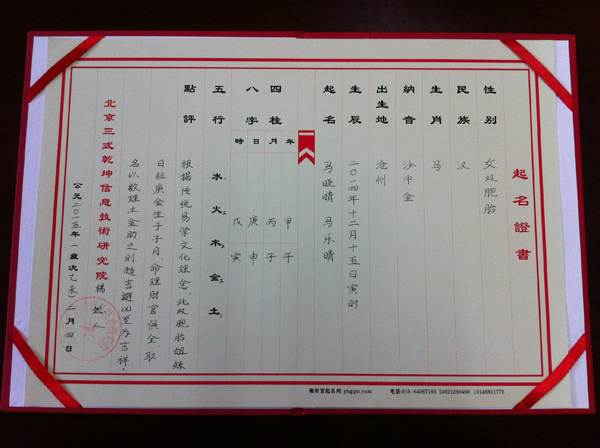 起名證書
性别 女双胞胎
民族 汉
生肖 马
納音 沙中金
出生地 沧州
生辰 二〇一四年十二月十五日寅时
起名 马晓晴 马乐晴
四柱
八字
年 甲午
月 丙子
日 庚申
時 戊寅
五行 水 火 木 金 土
點評 根据传统易学文化理念,此双胞胎姐妹
日柱庚金生于子月,命理财官俱全,取
名以数理土金助之则趋吉避凶至为吉祥。
北京三式乾坤信息技術研究院 楊
公元二〇一五年(歲次乙未)二月四日
雍和宫起名网 电话:010-64087185 13621289499 13146811775